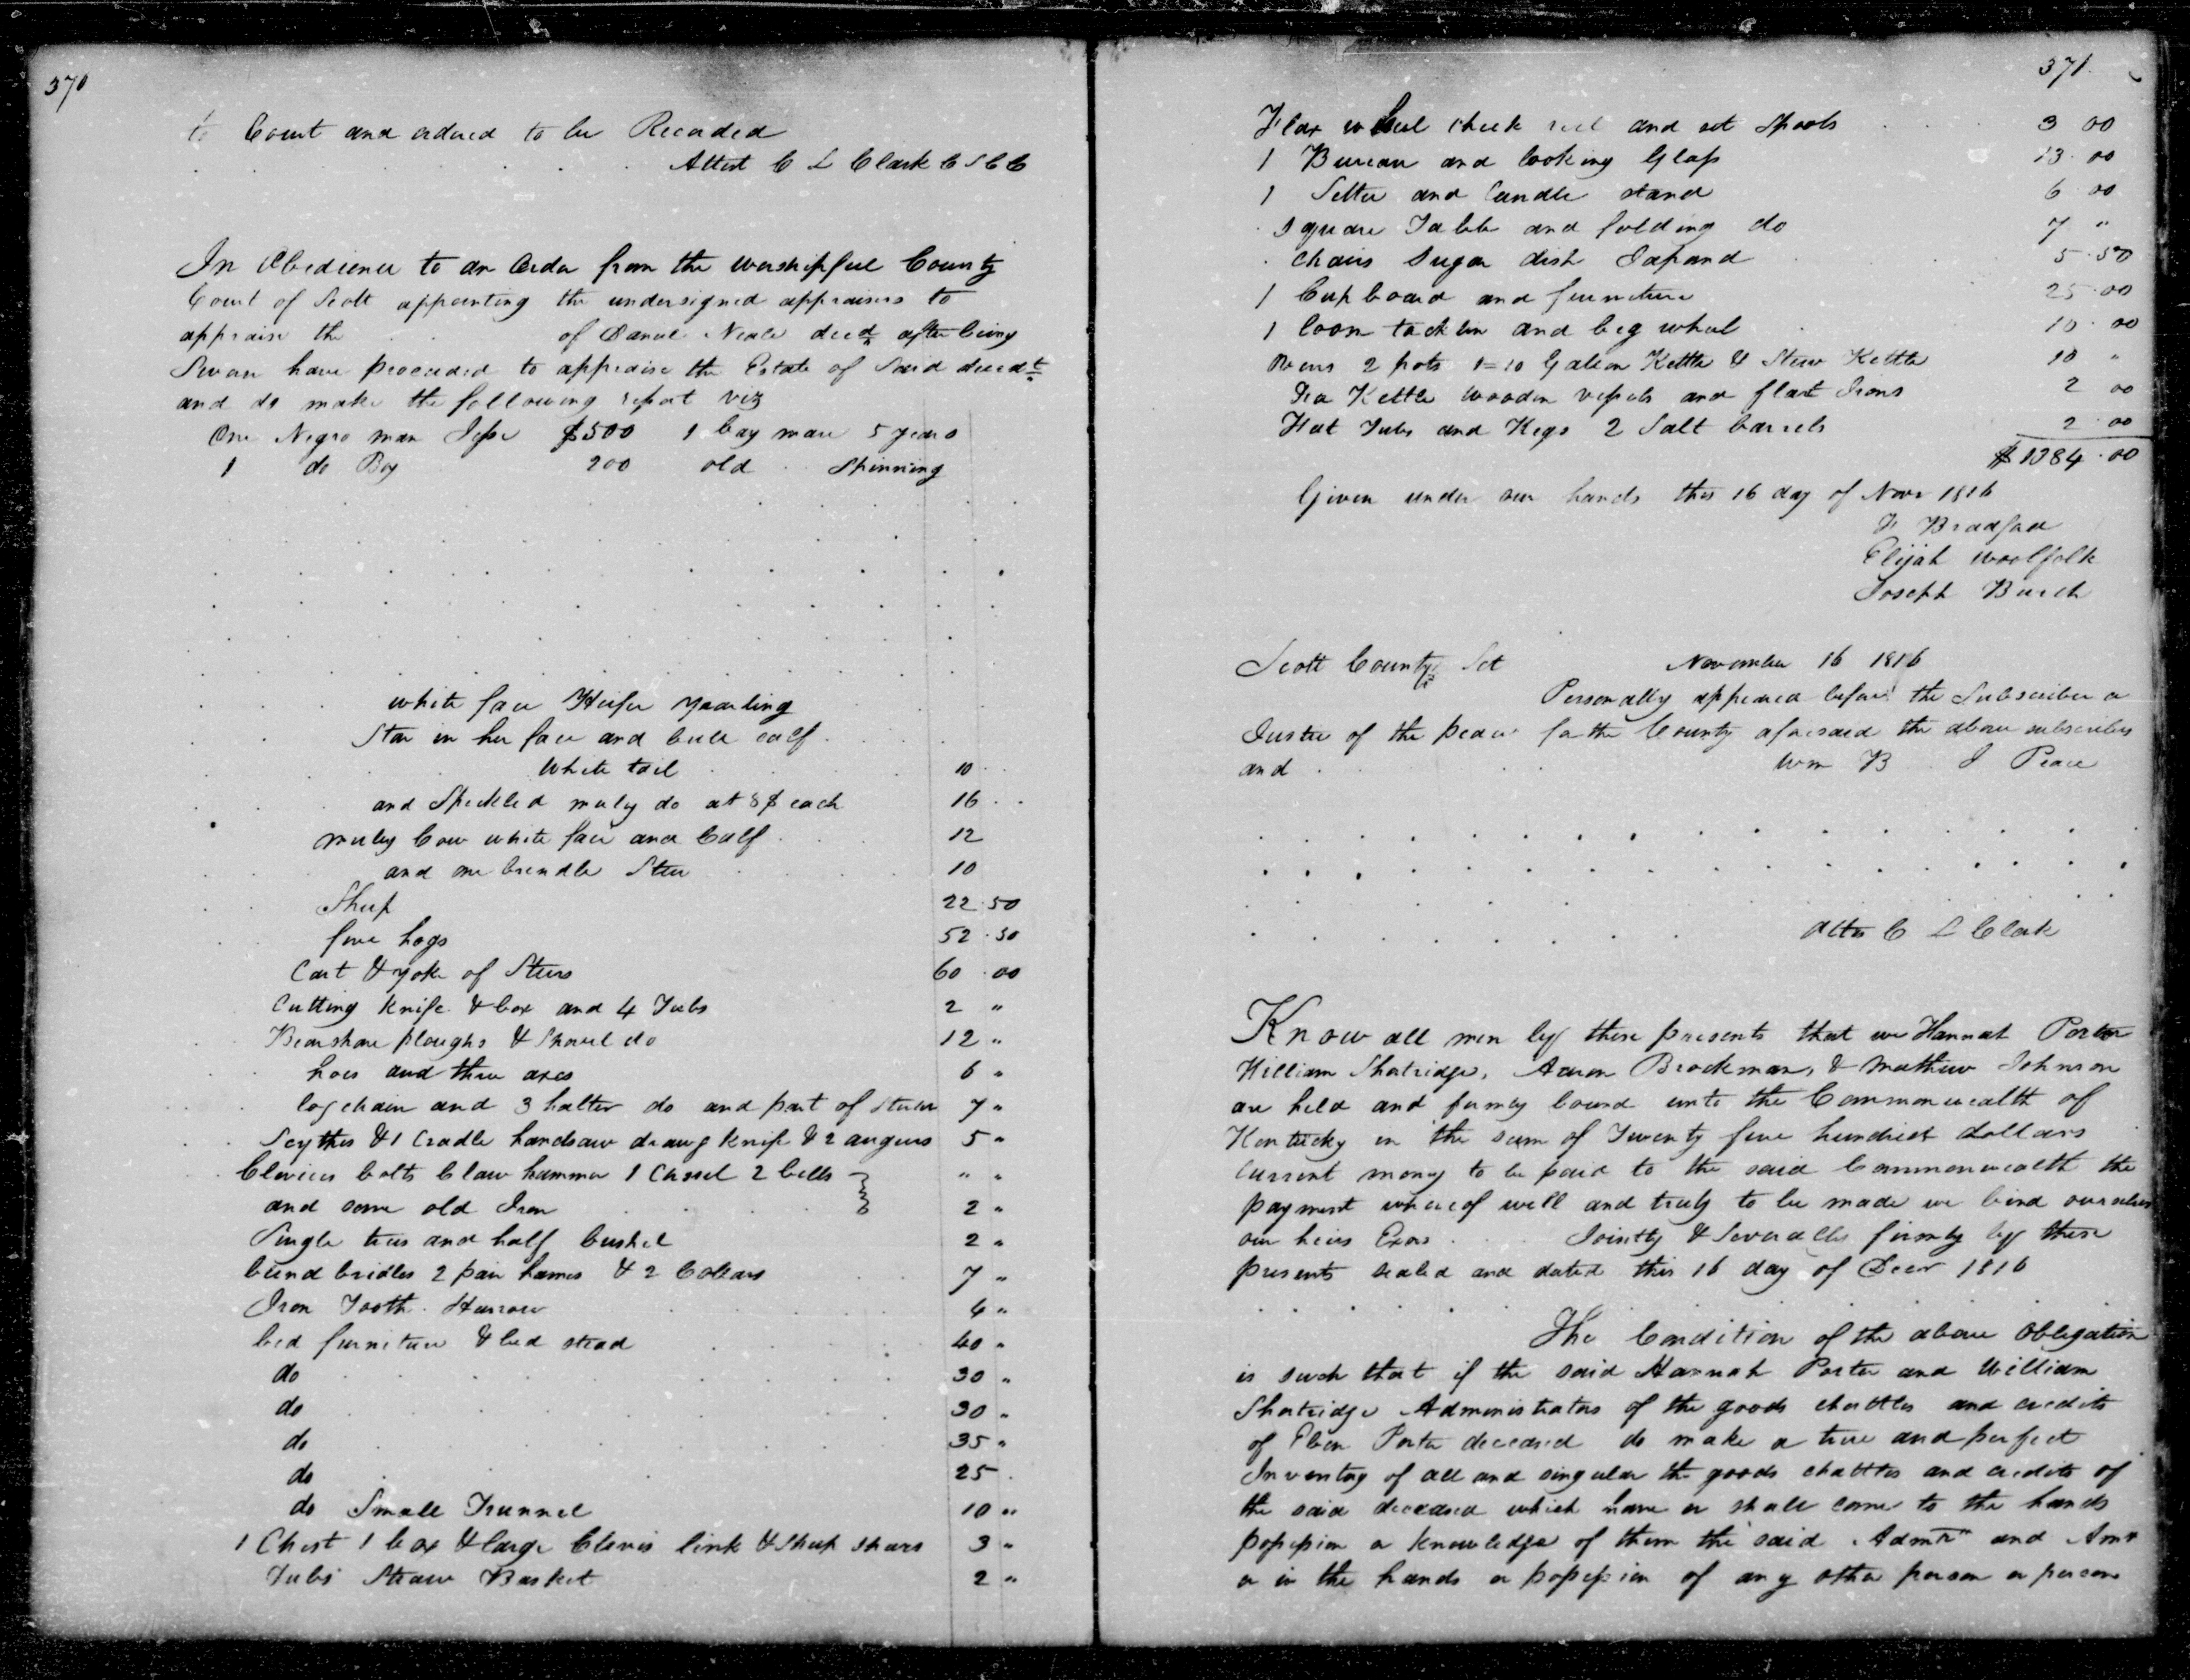 370
to Court and ordered to be Recorded
Attest C L Clark C S C C
In Obedience to an Order from the worshipful County
Court of Scott appointing the undersigned appraisers to
appraise the of Daniel Neale decd after being
Sworn have proceeded to appraise the Estate of Said decedt
and do make the following report viz
One Negro man Jesse $500 1 bay mare 5 years
1 do Boy 200 old Spinning
white face Heifer yearling
Star in her face and bull calf
White tail 10
and Speckled muly do at 8$ each 16
muley Cow white face and Calf 12
and one brindle Steer 10
Sheep 22.50
five hogs 52.50
Cart & yoke of Steers 60.00
Cutting Knife & box and 4 Tubs 2 "
Bearshare ploughs & Shovel do 12 "
hoes and three axes 6 "
log chain and 3 halter do and part of 7 "
Scythes & 1 Cradle handsaw drawg Knife & 2 augurs 5 "
Clevices bolts Claw hammer 1 Chisel 2 bells " "
and some old Iron 2 "
Single trees and half bushel 2 "
blind bridles 2 pair hames & 2 Collars 7 "
Iron Tooth Harrow 6 "
bed furniture & bed stead 40 "
do 30 "
do 30 "
do 35 "
do 25
do Small Trunnel 10 "
1 Chest 1 box & large Clevis link & Sheep shears 3 "
Tubs Straw Basket 2 "
371
Flax wheel check reel and set Spools 3 00
1 Bureau and looking Glass 13.00
1 Settee and Candle stand 6 00
Square Table and folding do 7 "
Chairs Sugar dish Japand 5.50
1 Cupboard and furniture 25.00
1 loom tacklin and big wheel 10.00
Ovens 2 pots 1=10 Galeon Kettle & Stew Kettle 10 "
Tea Kettle wooden vessels and flat Irons 2 00
Fat Tubs and Kegs 2 Salt barrels 2.00
$1384.00
Given under our hands this 16 day of Novr 1816
F Bradford
Elijah Woolfolk
Joseph Burch
Scott County Sct November 16 1816
Personally appeared before the Subscriber a
Justice of the peace for the County aforesaid the above subscribers
and Wm B J Peace
Atts C L Clark
Know all men by these presents that we Hannah Porter
William Shatridge, Aaron Brockman, & Mathew Johnson
are held and firmly bound unto the Commonwealth of
Kentucky in the sum of Twenty five hundred dollars
Current money to be paid to the said Commonwealth the
payment whereof well and truly to be made we bind ourselves
our heirs Exors Jointly & Severally firmly by these
presents sealed and dated this 16 day of Decr 1816
The Condition of the above Obligation
is such that if the said Hannah Porter and William
Shatridge Administrators of the goods chattles and credits
of Eben Porter deceased do make a true and perfect
Inventory of all and singular the goods chattles and credits of
the said deceased which have or shall come to the hands
possession or knowledge of them the said Admrx and Amr
or in the hands or possession of any other person or persons